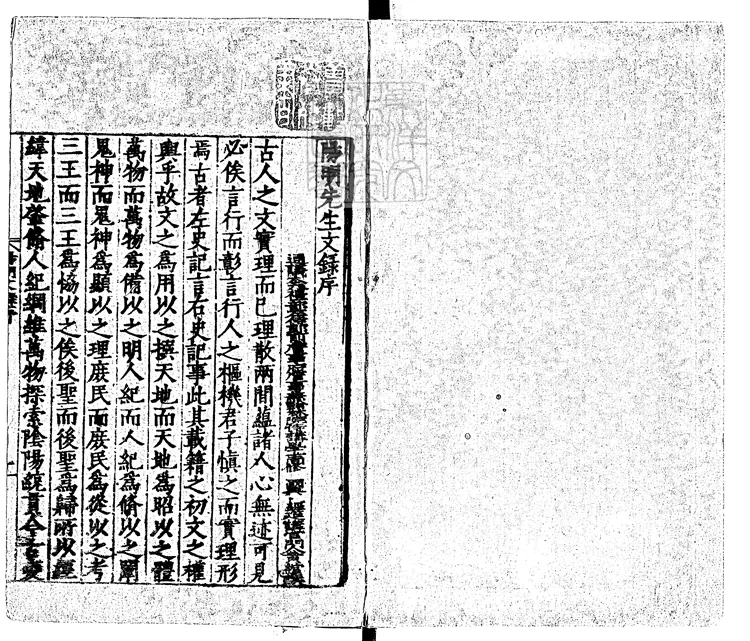 陽明先生文錄序
古人之文實理而已理散兩間蘊諸人心無迹可見
必俟言行而彰言行人之樞機君子愼之而實理形
焉古者左史記言右史記事此其載籍之初文之權
輿乎故文之爲用以之撰天地而天地爲昭以之體
萬物而萬物爲備以之明人紀而人紀爲脩以之闡
鬼神而鬼神爲顯以之理庶民而庶民爲從以之考
三王而三王爲恊以之俟後聖而後聖爲歸所以經
緯天地肇脩人紀綱維萬物探索陰陽統貫今古變